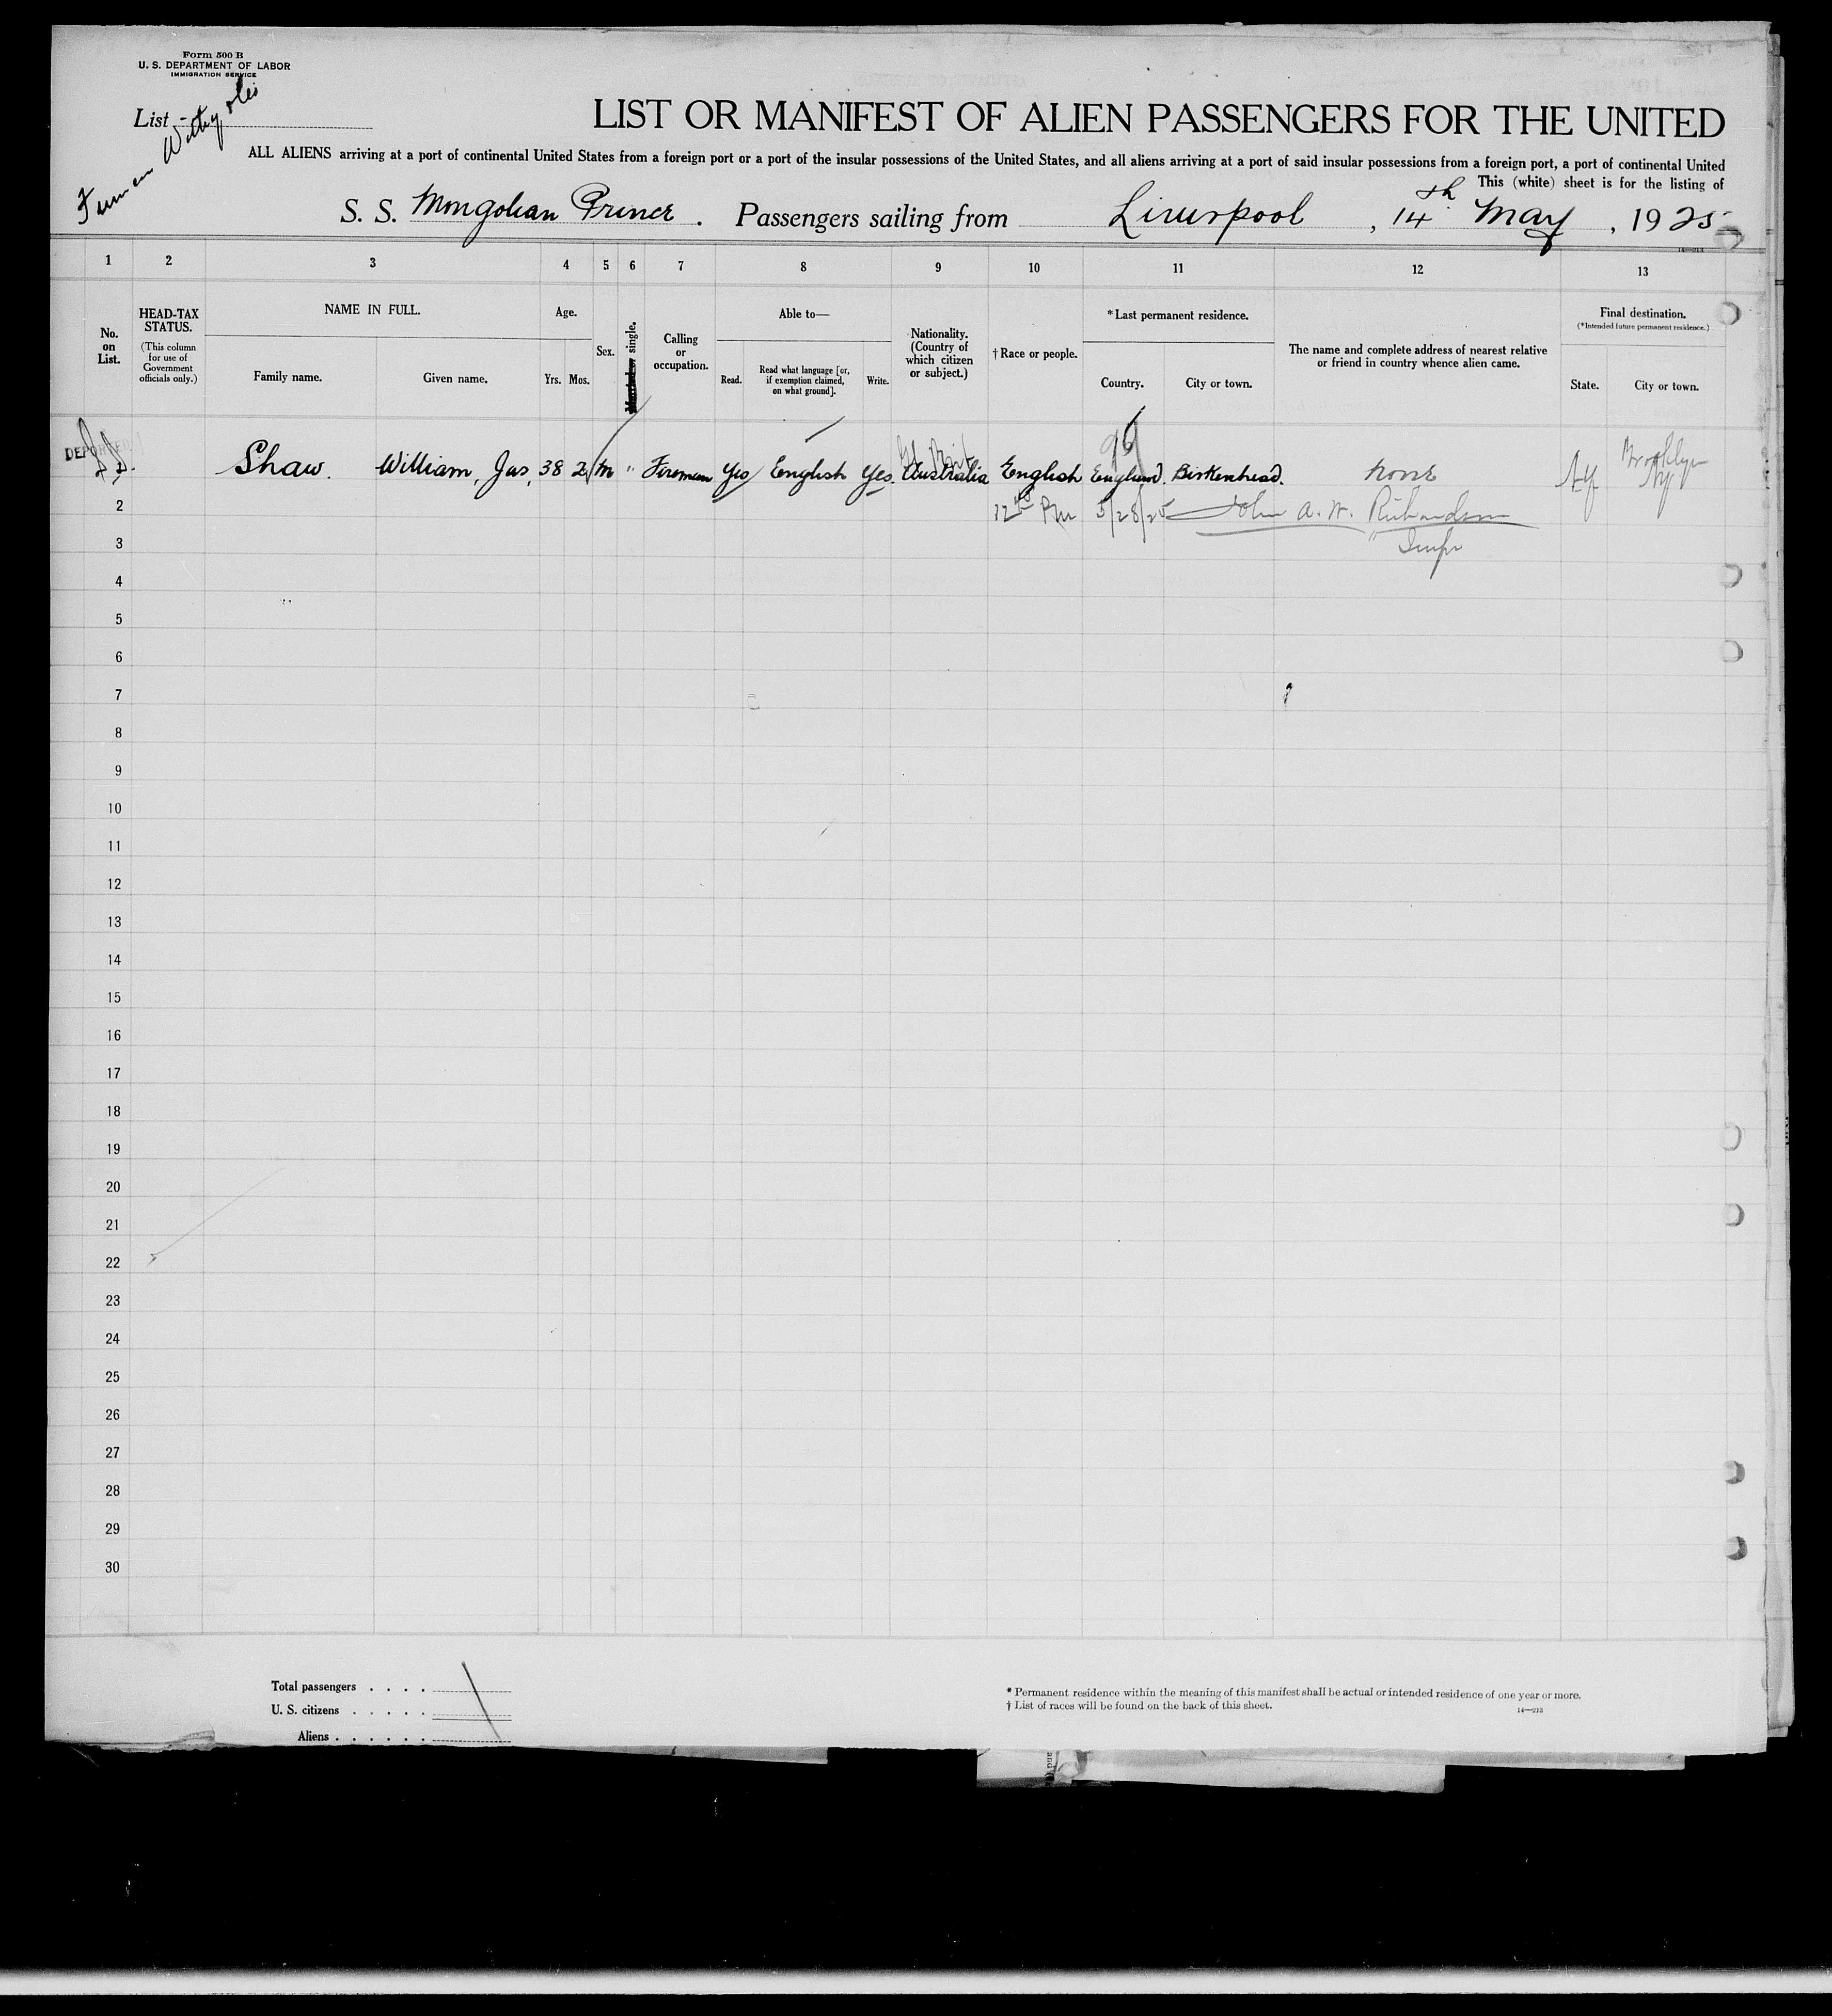 Form 500 B
U. S. DEPARTMENT OF LABOR
IMMIGRATION SERVICE
List
LIST OR MANIFEST OF ALIEN PASSENGERS FOR THE UNITED
ALL ALIENS arriving at a port of continental United States from a foreign port or a port of the insular possessions of the United States, and all aliens arriving at a port of said insular possessions from a foreign port, a port of continental United
This (white) sheet is for the listing of
S. S. Mongolian Prince. Passengers sailing from Liverpool, 14th May, 1925
14—213
1 2 3 4 5 6 7 8 9 10 11 12 13
No. on List.
HEAD-TAX STATUS.
(This column for use of Government officials only.)
NAME IN FULL.
Family name.
Given name.
Age.
Yrs. Mos.
Sex.
Married or single.
Calling or occupation.
Able to—
Read.
Read what language [or, if exemption claimed, on what ground].
Write.
Nationality. (Country of which citizen or subject.)
† Race or people.
* Last permanent residence.
Country.
City or town.
The name and complete address of nearest relative or friend in country whence alien came.
Final destination.
(* Intended future permanent residence.)
State.
City or town.
Brooklyn
DEPORTED Shaw. William, Jas, 38 2 m " Fireman Yes English Yes. Australia English England. Birkenhead. none NY NY
2 12 Pm 5/28/25 John A. W. Richardson
3 Inspr
4
5
6
7
8
9
10
11
12
13
14
15
16
17
18
19
20
21
22
23
24
25
26
27
28
29
30
Total passengers . . . .
U. S. citizens . . . . .
Aliens . . . . . .
* Permanent residence within the meaning of this manifest shall be actual or intended residence of one year or more.
† List of races will be found on the back of this sheet.
14—213